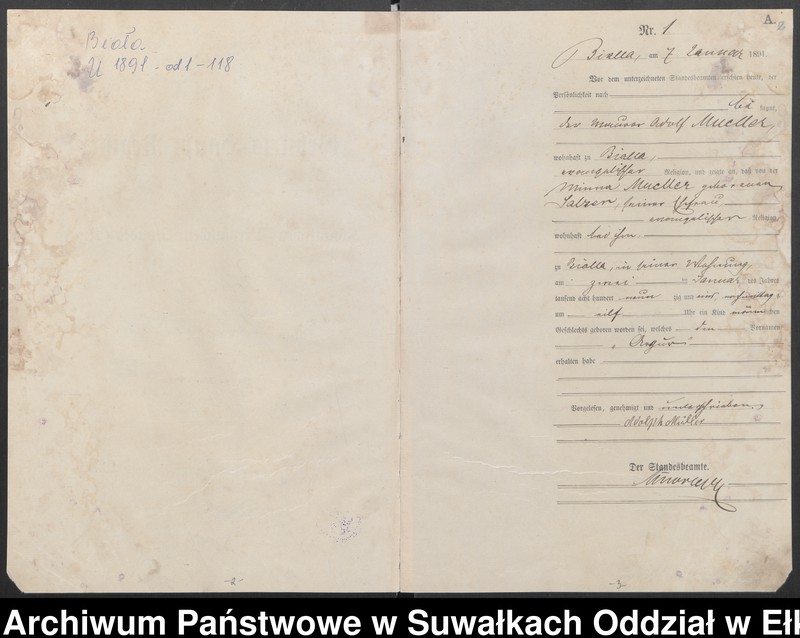 Biała
U 1891 - od 1-118
-2-
A.
2
Nr. 1
Bialla, am 7. Januar 1891
Vor dem unterzeichneten Standesbeamten erschien heute, der
Persönlichkeit nach
kannt,
der Maurer Adolf Mueller,
wohnhaft zu Bialla,
evangelischer Religion, und zeigte an, daß von der
Minna Mueller geborenen
Salzer, seiner Ehefrau
evangelischer Religion
wohnhaft bei ihm,
zu Bialla, in seiner Wohnung
am zwei Januar des Jahres
tausend acht hundert neunzig und eins,
um elf Uhr ein Kind männlichen
Geschlechts geboren worden sei, welches den Vornamen
erhalten habe
Vorgelesen, genehmigt und unterschrieben,
Adolph Müller
Der Standesbeamte.
-3-
Archiwum Państwowe w Suwałkach Oddział w Eł